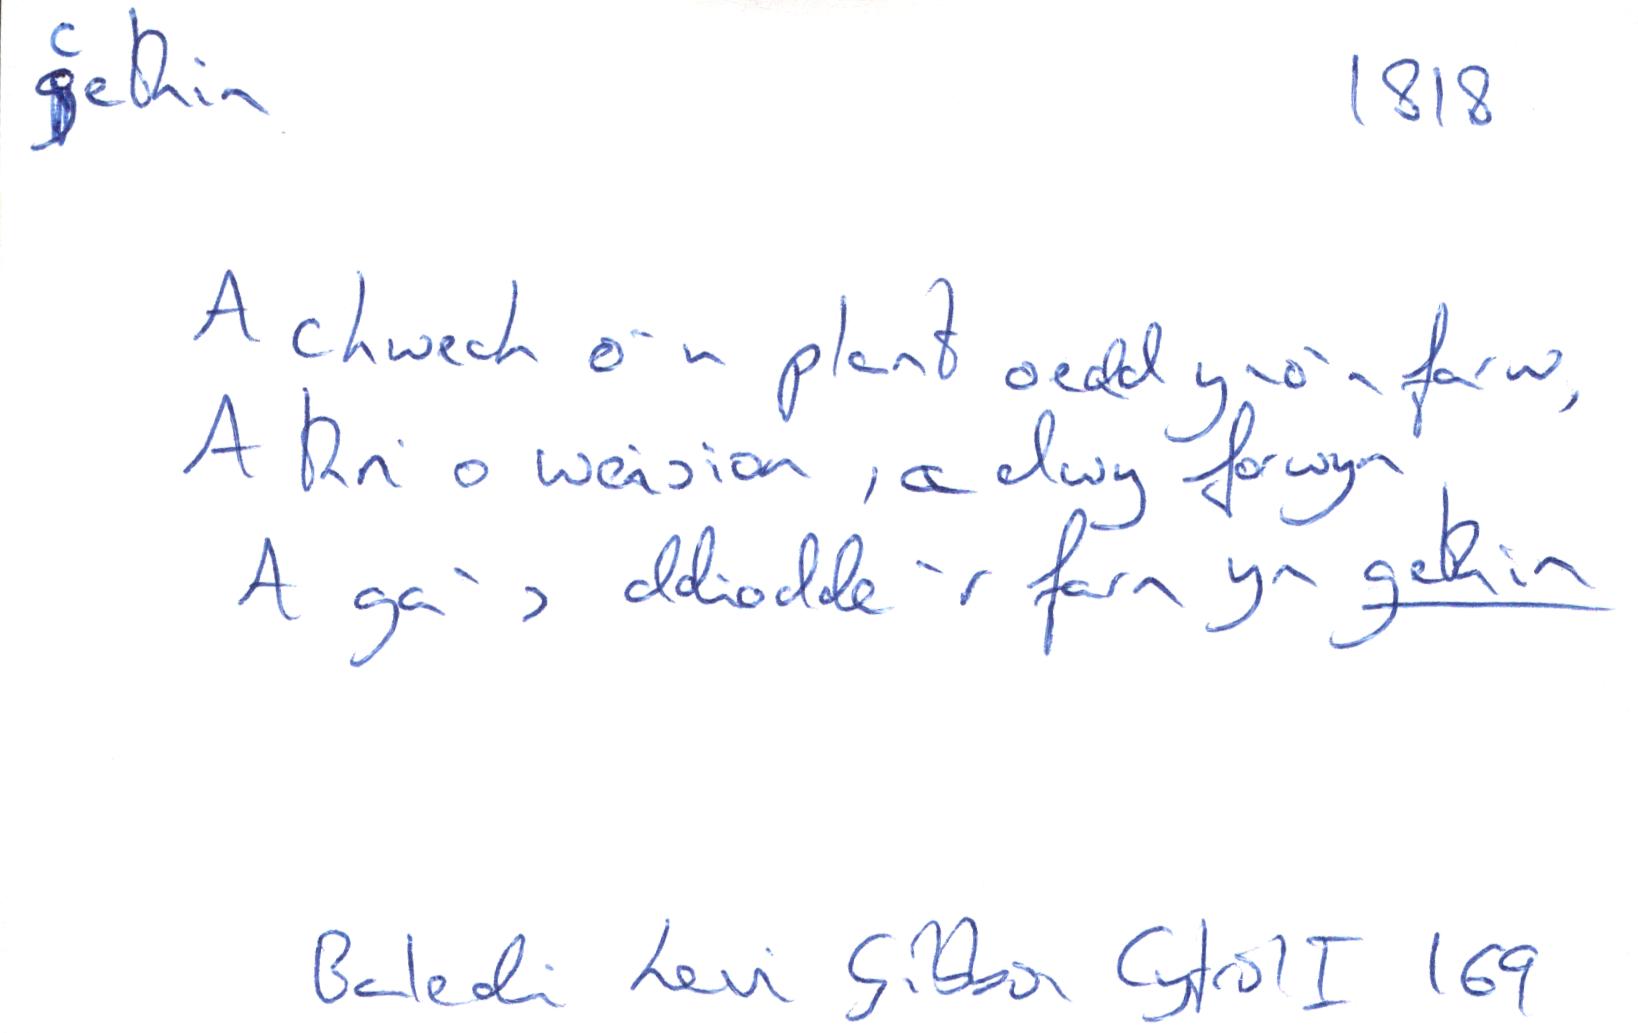 cethin 1818
A chwech o'n plant oedd yno'n farw,
A thri o weision, a dwy forwyn
A ga's ddiodde'r farn yn gethin
Baledi Levi Gibbon Cyfrol I 169